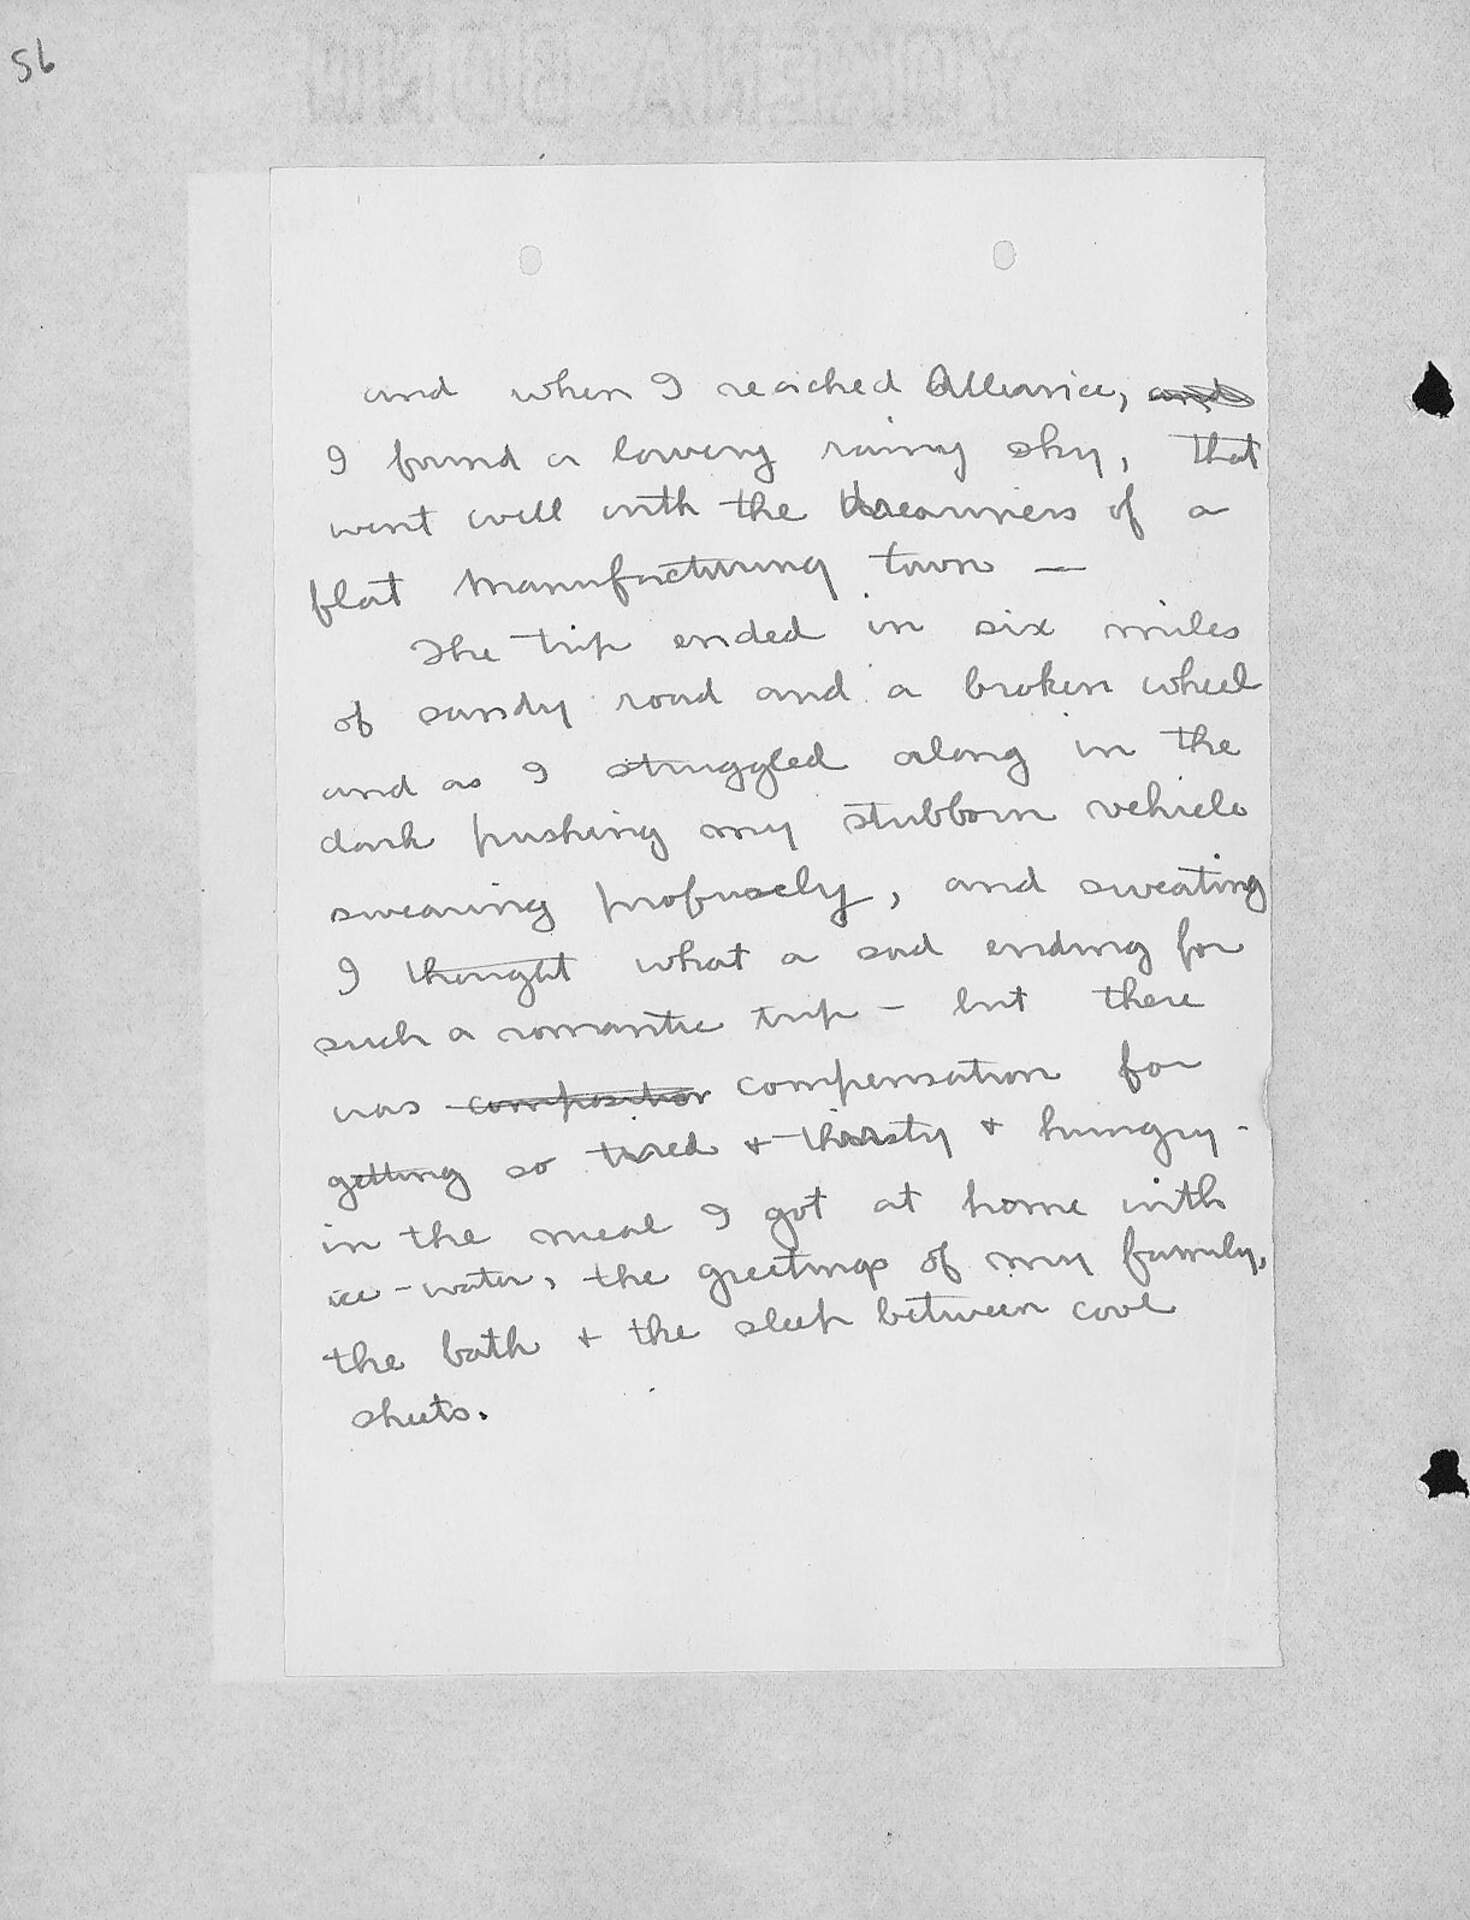 56
and when I reached Alliance, and
I found a lowery rainy sky, that
went well with the dreariness of a
flat manufacturing town —
The trip ended in six miles
of sandy road and a broken wheel
and as I struggled along in the
dark pushing my stubborn vehicle
swearing profusely, and sweating
I thought what a sad ending for
such a romantic trip - but there
was composition compensation for
getting so tired + thirsty + hungry -
in the meal I got at home with
ice-water, the greetings of my family,
the bath + the sleep between cool
sheets.